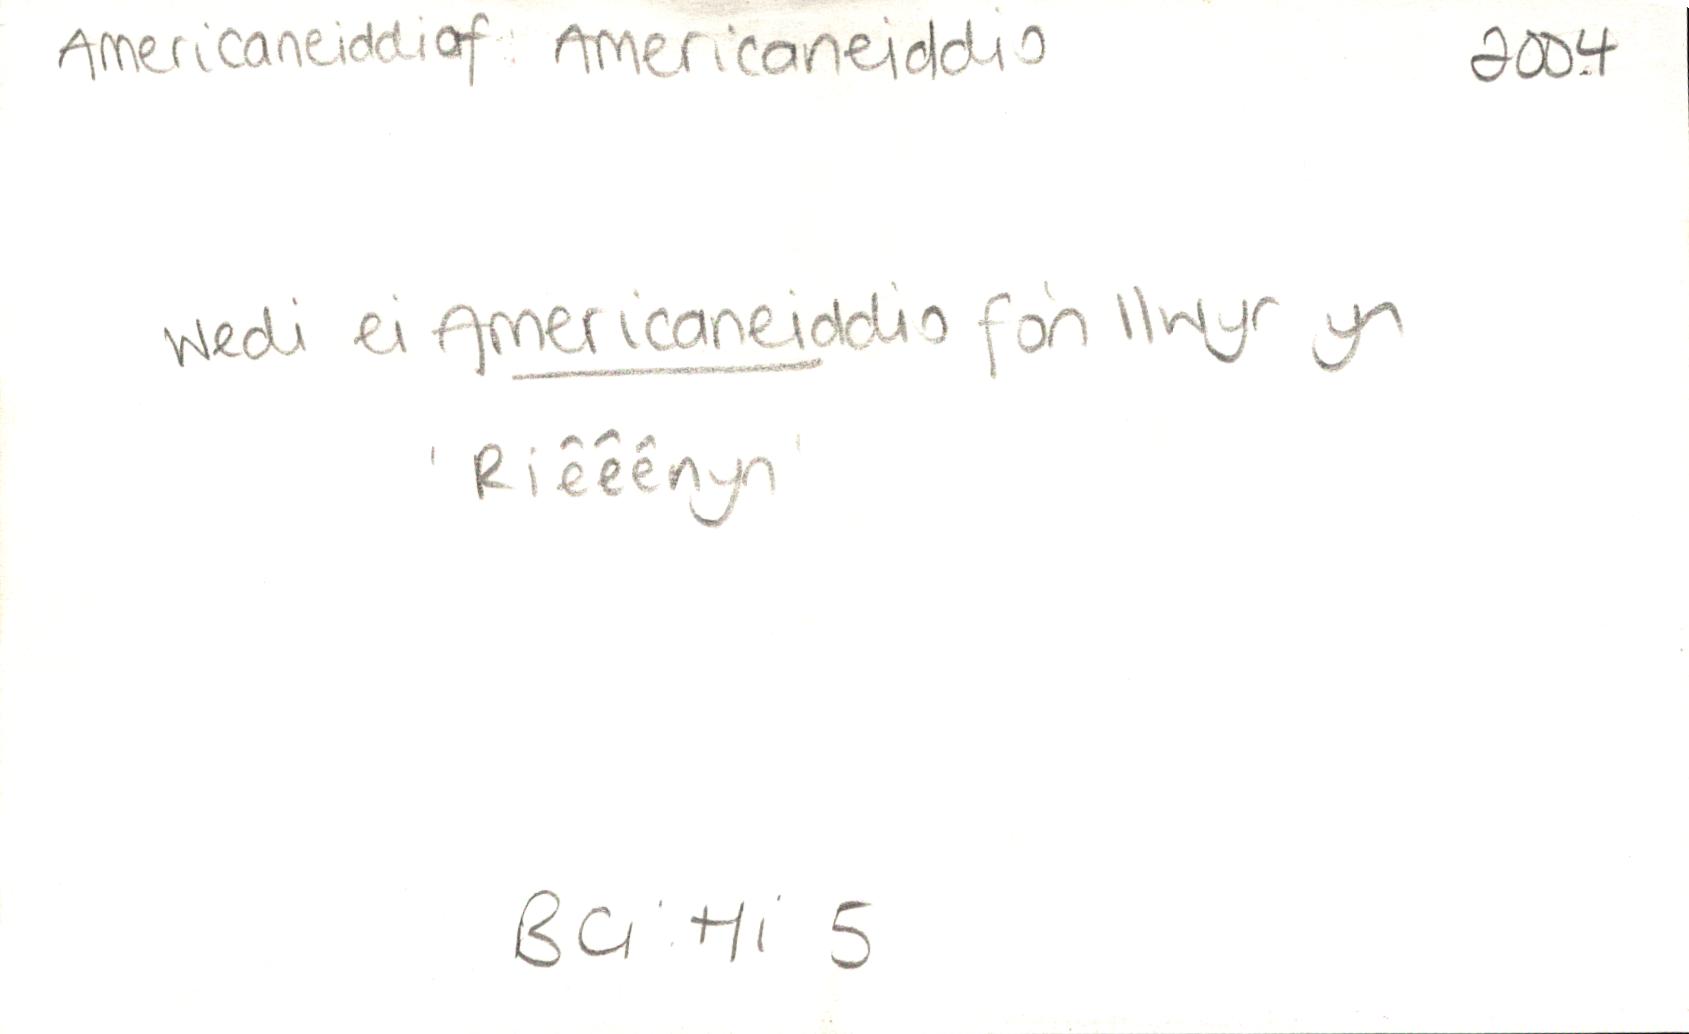 Americaneiddiaf: Americaneiddio 2004
Wedi ei Americaneiddio fo'n llwyr yn
'Riêêênyn'
BG: Hi 5